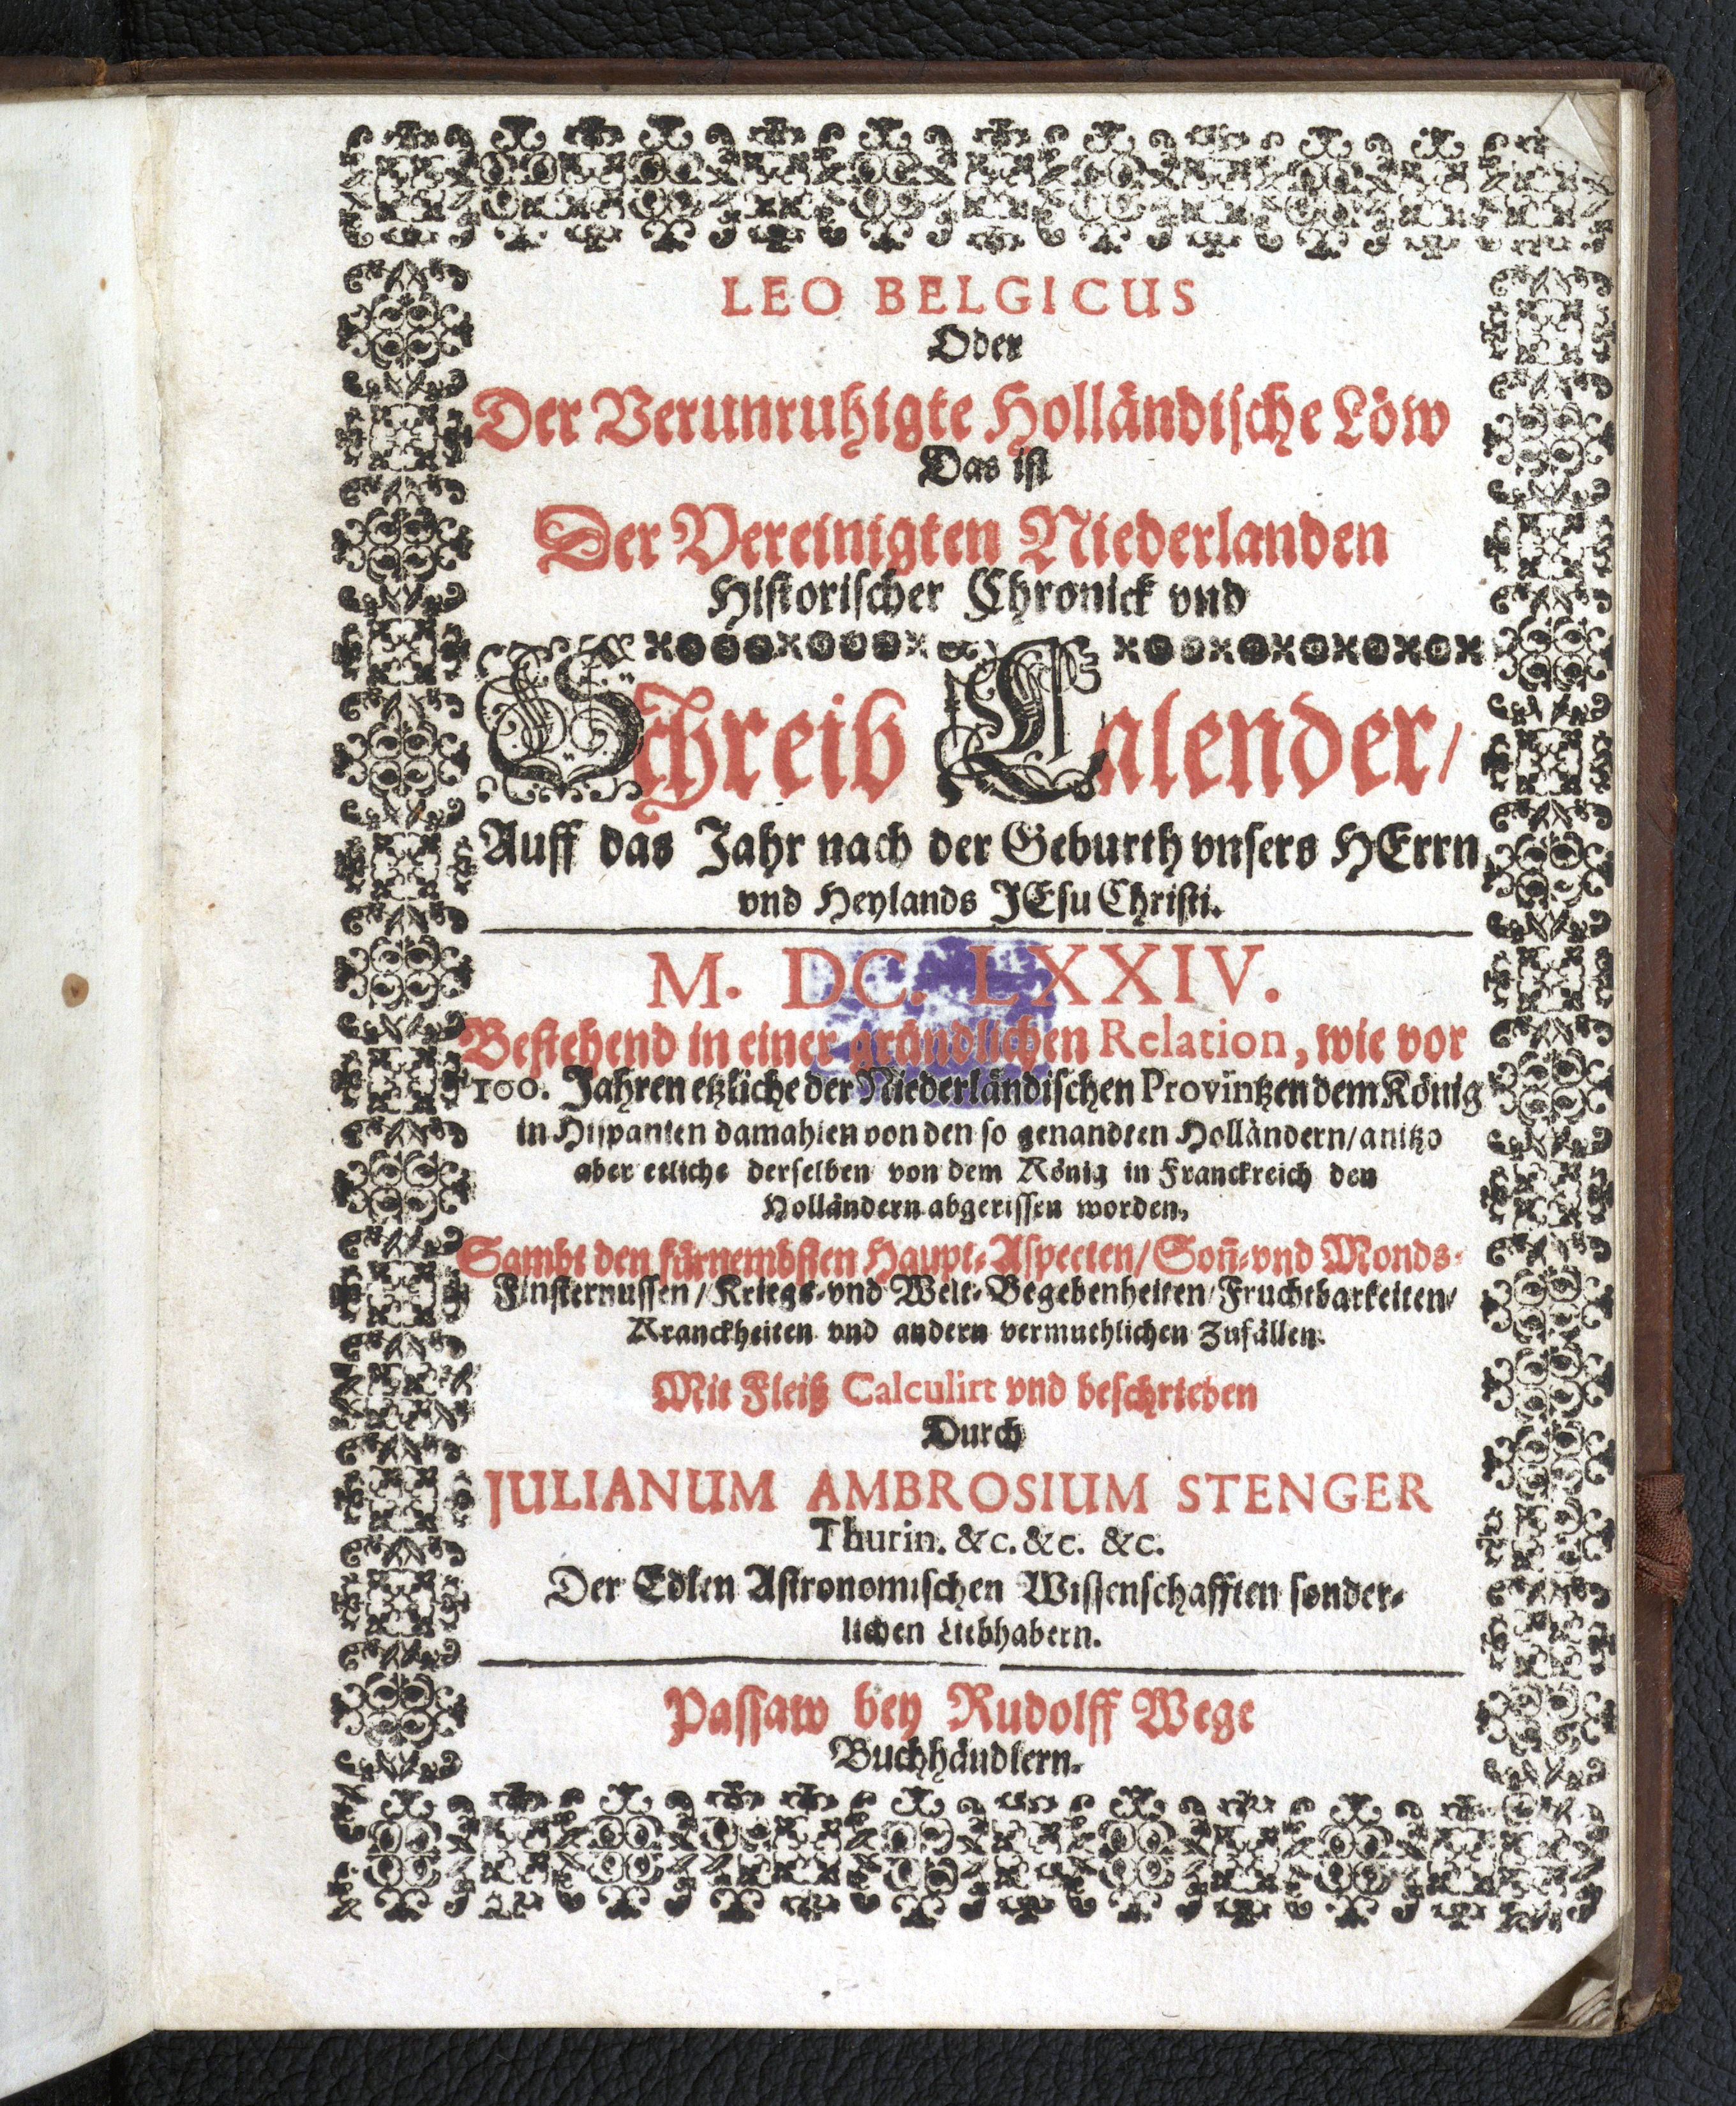 LEO BELGICUS
Oder
Der Verunruhigte Holländische Löw
Das ist
Der Vereinigten Niederlanden
Historischer Chronick vnd
Schreib Calender/
Auff das Jahr nach der Geburth vnsers HErrn
vnd Heylands JEsu Christi.
M. DC. LXXIV.
Bestehend in einer gründlichen Relation, wie vor
100. Jahren etzliche der Niederländischen Provintzen dem König
in Hispanien damahlen von den so genandten Holländern/anitzo
aber etliche derselben von dem König in Franckreich den
Holländern abgerissen worden.
Sambt den fürnembsten Haupt-Aspecten/Soñ-vnd Monds-
Finsternussen/Kriegs-vnd Welt-Begebenheiten/Fruchtbarkeiten/
Kranckheiten vnd andern vermuthlichen Zufällen.
Mit Fleiß Calculirt vnd beschrieben
Durch
JULIANUM AMBROSIUM STENGER
Thurin. &c. &c. &c.
Der Edlen Astronomischen Wissenschafften sonder-
lichen Liebhabern.
Passaw bey Rudolff Wege
Buchhändlern.